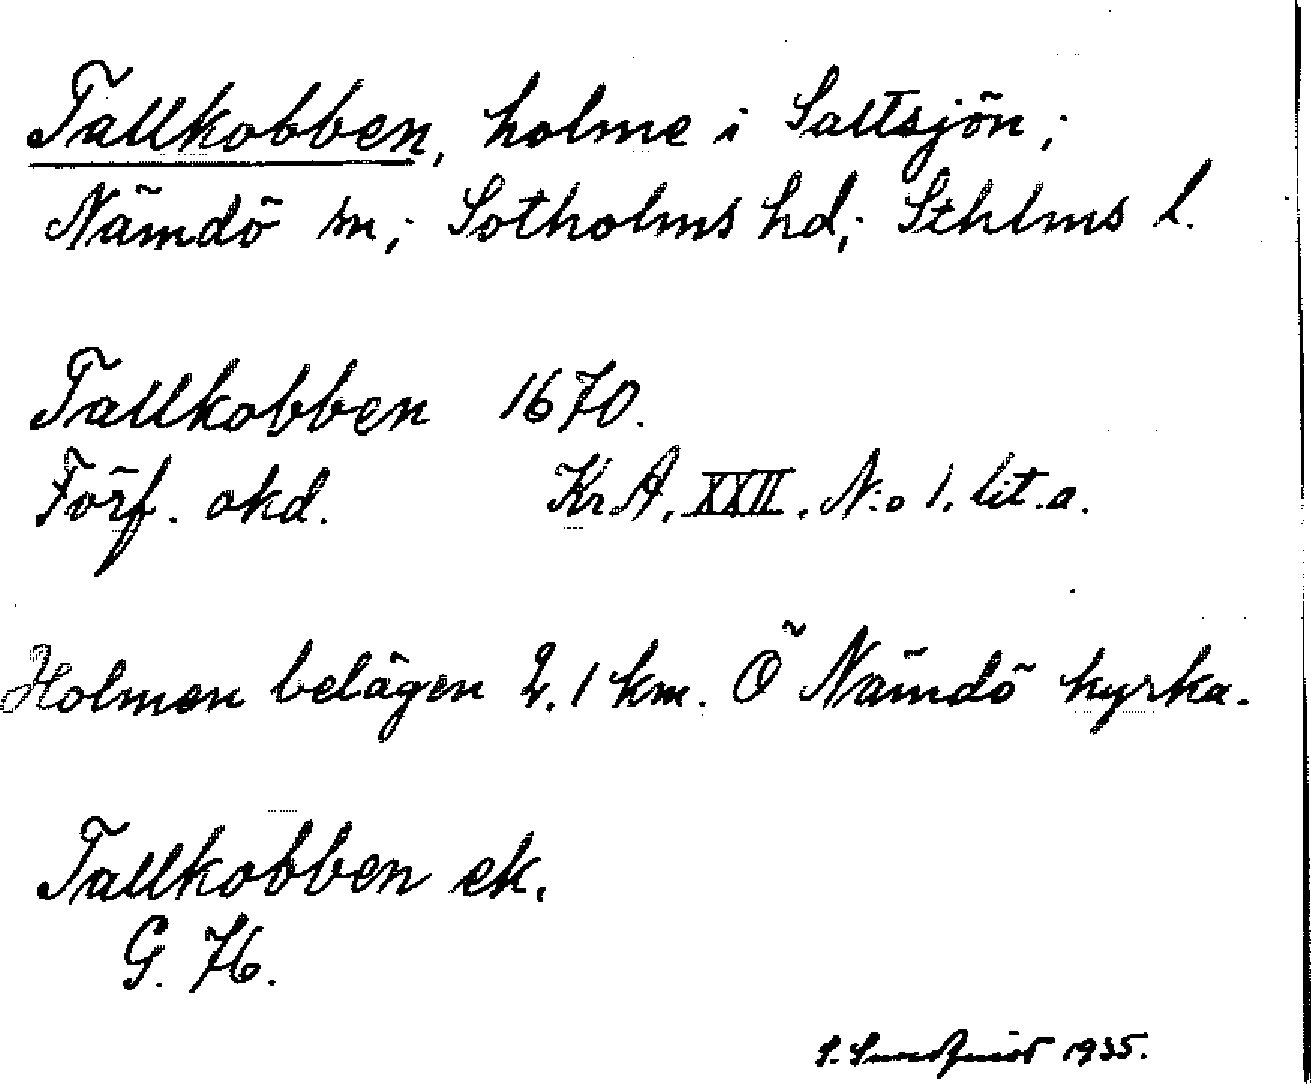 Tallkobben, holme i Saltsjön;
Nämdö sn; Sotholms hd; Sthlms l.
Tallkobben 1670.
Förf. okd. KrA. XXII. N:o 1. lit.a.
Holmen belägen 2,1 km. Ö Nämdö kyrka.
Tallkobben ek.
G. 76.
S. 1935.